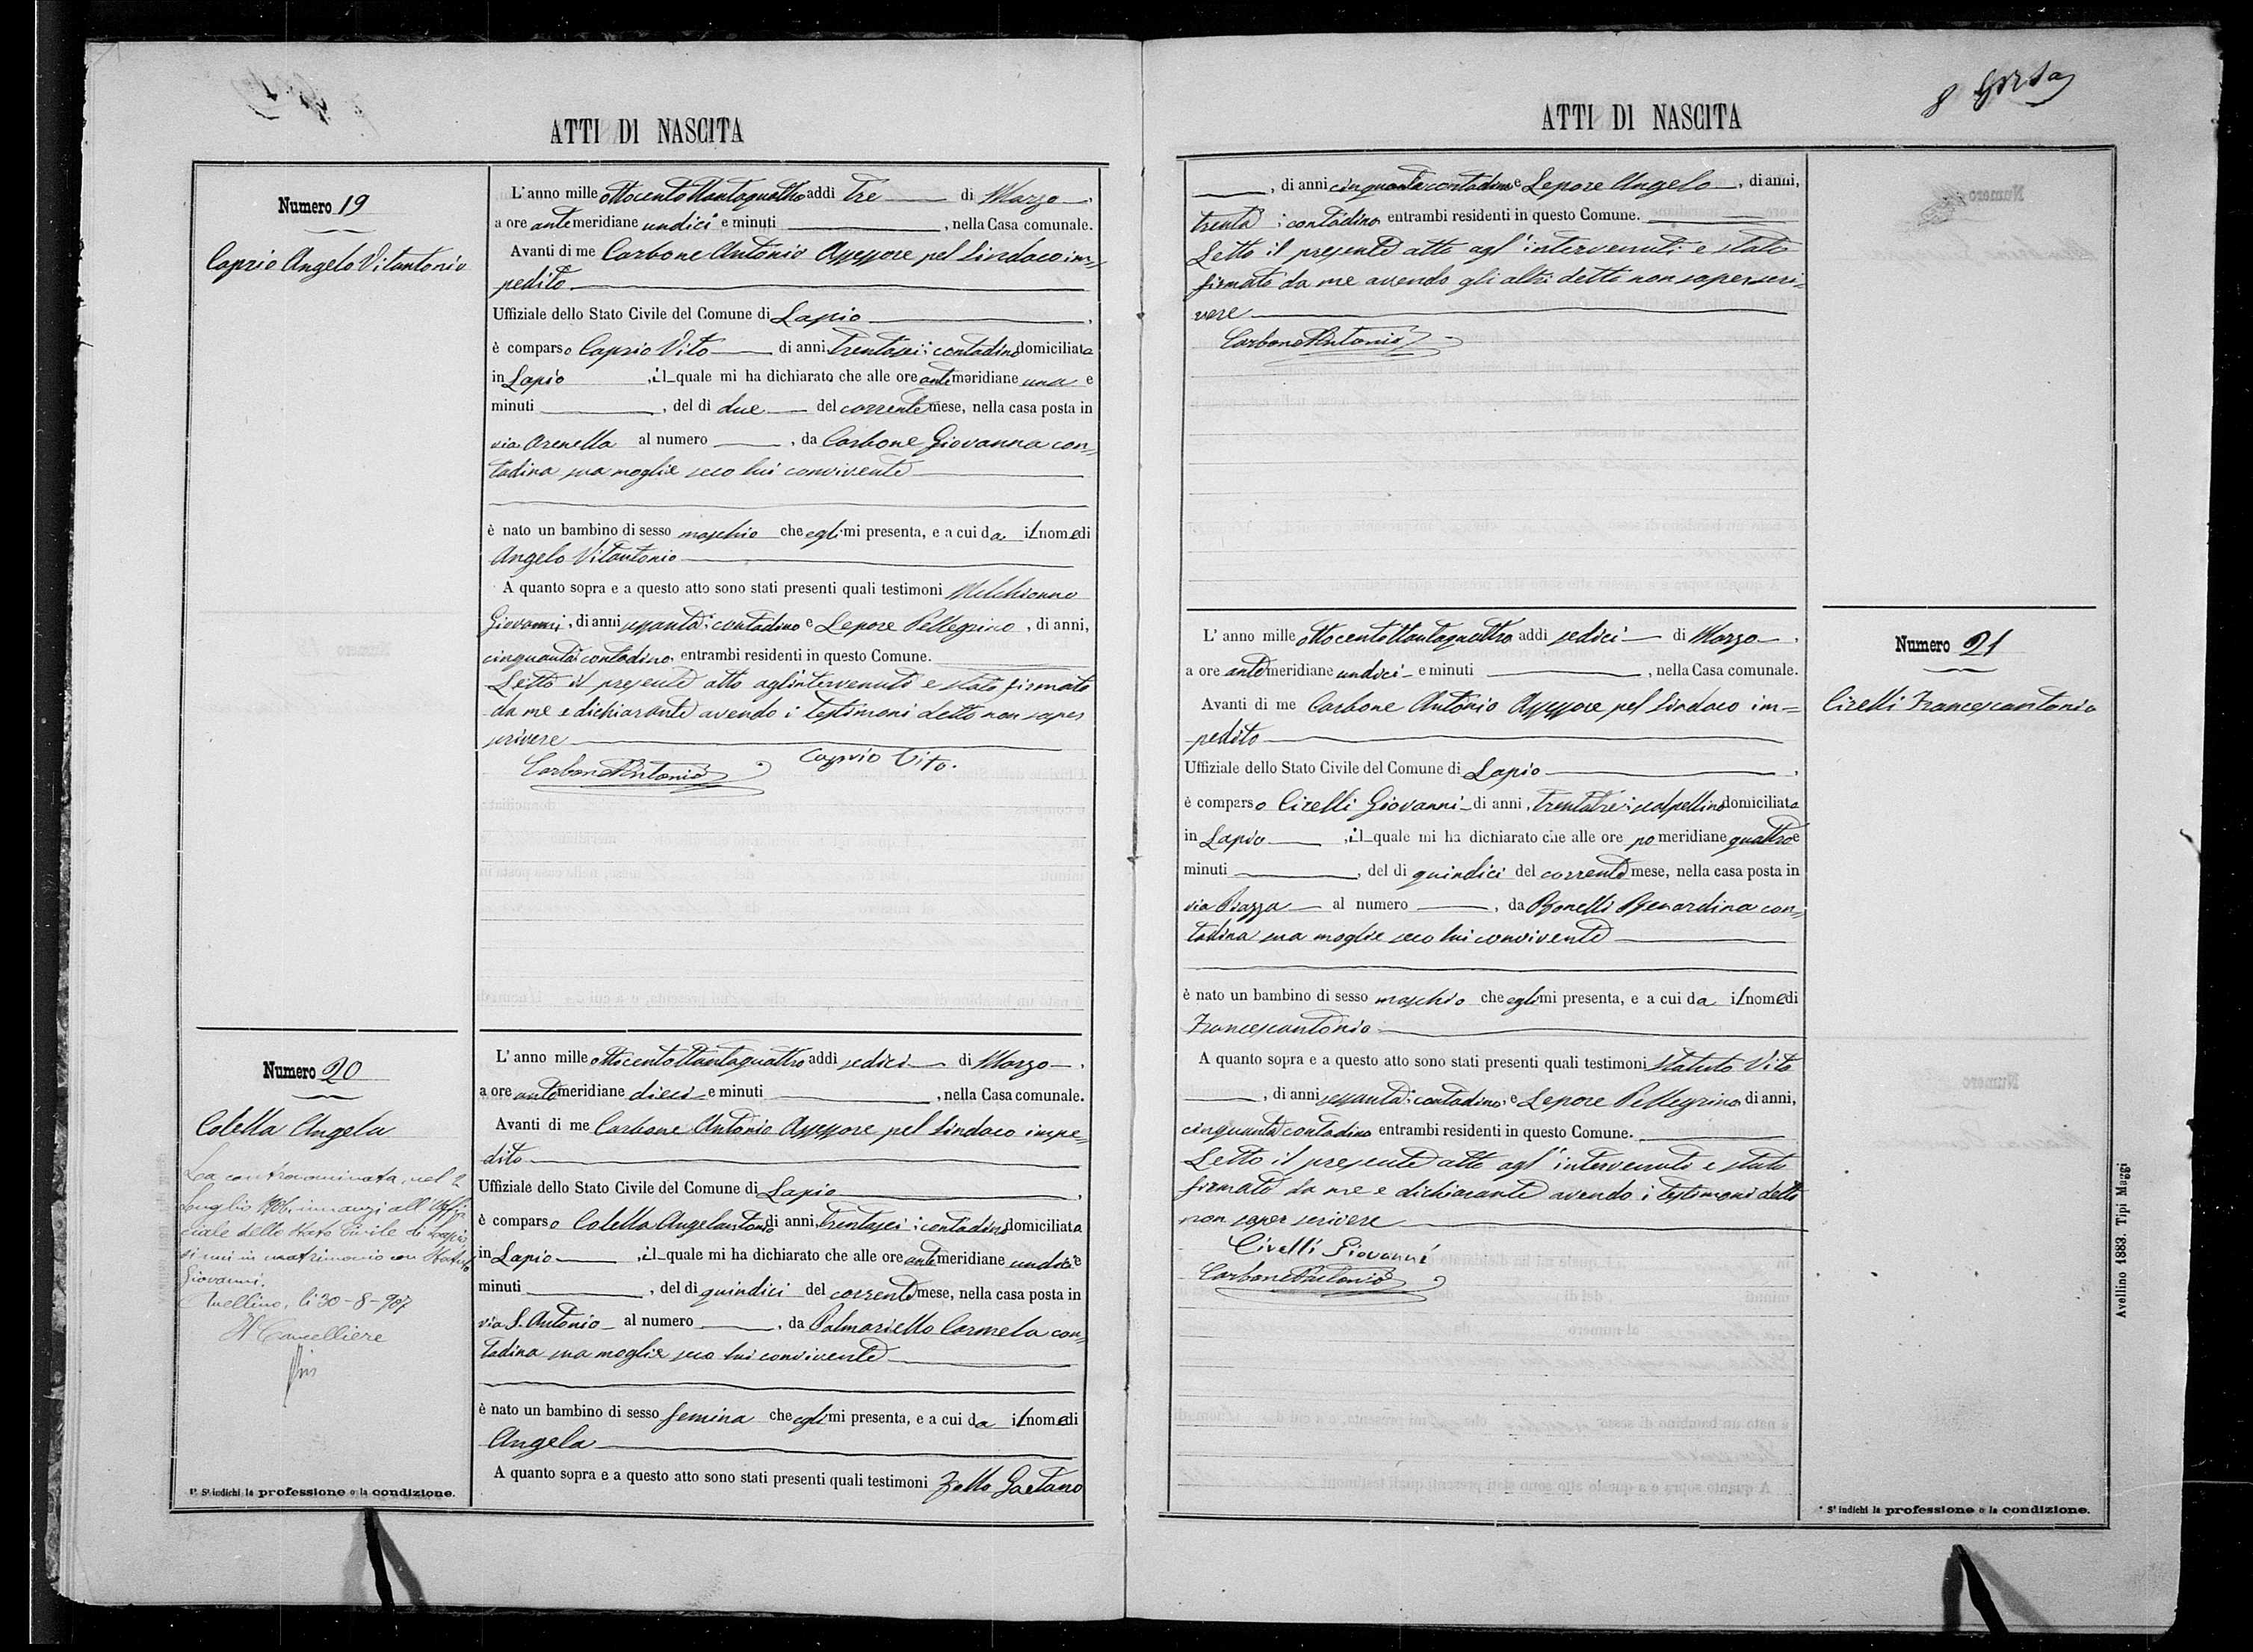 ATTI DI NASCITA
Numero 19
Caprio Angelo Vitantonio
L'anno mille ottocentottantaquattro addi tre di Marzo,
a ore antemeridiane undici e minuti , nella Casa comunale.
Avanti di me Carbone Antonio Assessore pel Sindaco im=
pedito
Uffiziale dello Stato Civile del Comune di Lapio ,
è comparso Caprio Vito di anni trentasei; contadino domiciliato
in Lapio , il quale mi ha dichiarato che alle ore antemeridiane una e
minuti , del dì due del corrente mese, nella casa posta in
via Arenella al numero , da Carbone Giovanna con=
tadina sua moglie seco lui convivente
è nato un bambino di sesso maschio che egli mi presenta, e a cui da il nome di
Angelo Vitantonio
A quanto sopra e a questo atto sono stati presenti quali testimoni Melchionno
Giovanni, di anni sessanta; contadino e Lepore Pellegrino, di anni,
cinquanta contadino, entrambi residenti in questo Comune.
Letto il presente atto agl'intervenuti e stato firmato
da me e dichiarante avendo i testimoni detto non saper
scrivere
Caprio Vito.
Carbone Antonio
Numero 20
Colella Angela
La contronominata, nel 2
Luglio innanzi all'Uffi
ciale dello Stato Civile di Lapio,
si unì in matrimonio con Statuto
Giovanni.
Avellino, li 30-8-907
Il Cancelliere
L'anno mille ottocentottantaquattro addi sedici di Marzo,
a ore antemeridiane dieci e minuti , nella Casa comunale.
Avanti di me Carbone Antonio Assessore pel Sindaco impe=
dito
Uffiziale dello Stato Civile del Comune di Lapio ,
è comparso Colella Angelantonio di anni, trentasei; contadino domiciliato
in Lapio , il quale mi ha dichiarato che alle ore antemeridiane undici e
minuti , del dì quindici del corrente mese, nella casa posta in
via S. Antonio al numero , da Palmariello Carmela con=
tadina sua moglie seco lui convivente
è nato un bambino di sesso femina che egli mi presenta, e a cui da il nome di
Angela
A quanto sopra e a questo atto sono stati presenti quali testimoni Zollo Gaetano
1° Si indichi la professione o la condizione.
8
ATTI DI NASCITA
, di anni cinquanta contadino e Lepore Angelo , di anni,
trenta ; contadino entrambi residenti in questo Comune.
Letto il presente atto agl'intervenuti e stato
firmato da me avendo gli altri detto non saper scri=
vere
Carbone Antonio
L'anno mille ottocentottantaquattro addi sedici di Marzo ,
a ore antemeridiane undici e minuti , nella Casa comunale.
Avanti di me Carbone Antonio Assessore pel Sindaco im=
pedito
Uffiziale dello Stato Civile del Comune di Lapio ,
è comparso Cirelli Giovanni di anni, trentatre; scalpellino domiciliato
in Lapio , il quale mi ha dichiarato che alle ore pomeridiane quattro e
minuti , del dì quindici del corrente mese, nella casa posta in
via Piazza al numero , da Bonelli Berardina con=
tadina sua moglie seco lui convivente
è nato un bambino di sesso maschio che egli mi presenta, e a cui da il nome di
Francescantonio
A quanto sopra e a questo atto sono stati presenti quali testimoni Statuto Vito
, di anni sessanta; contadino, e Lepore Pellegrino di anni,
cinquanta contadino entrambi residenti in questo Comune.
Letto il presente atto agl'intervenuti e stato
firmato da me e dichiarante avendo i testimoni detto
non saper scrivere
Cirelli Giovanni
Carbone Antonio
Numero 21
Cirelli Francescantonio
* Si indichi la professione o la condizione.
Avellino 1883. Tipi Maggi